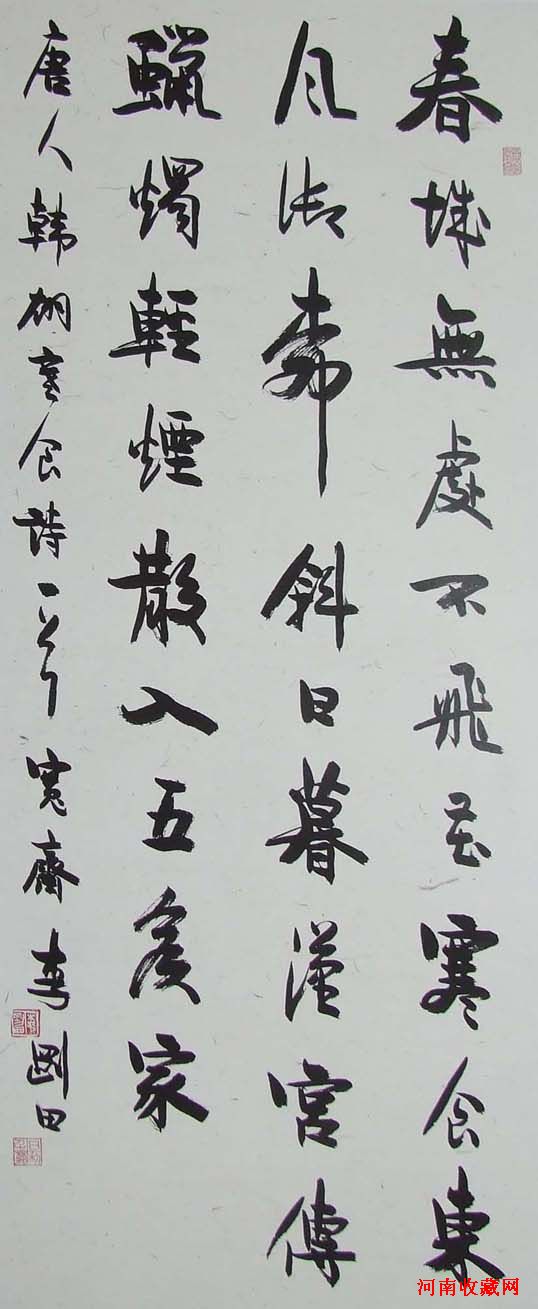 春城無處不飛花寒食東
風御柳斜日暮漢宮傳
蠟燭輕煙散入五矦家
唐人韓翃寒食詩一首 寬齋 李剛田
河南收藏网